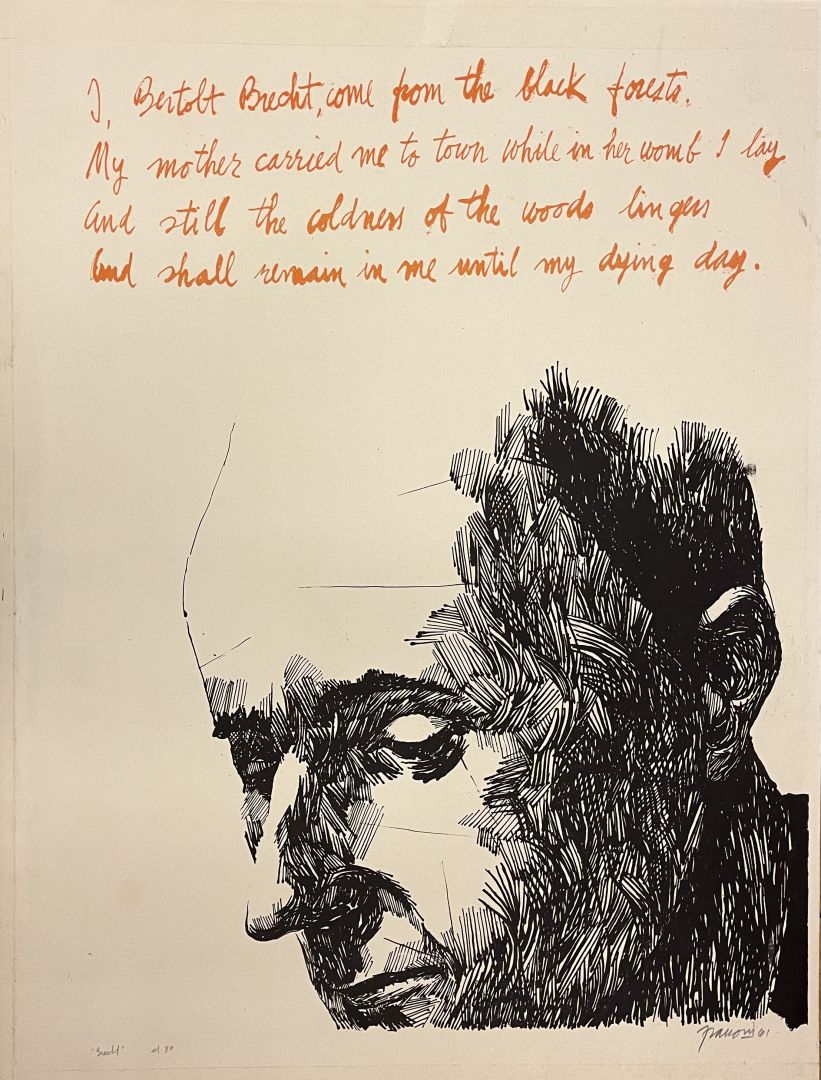 I, Bertolt Brecht, come from the black forests.
My mother carried me to town while in her womb I lay
And still the coldness of the woods lingers
And shall remain in me until my dying day.
"Brecht"
61